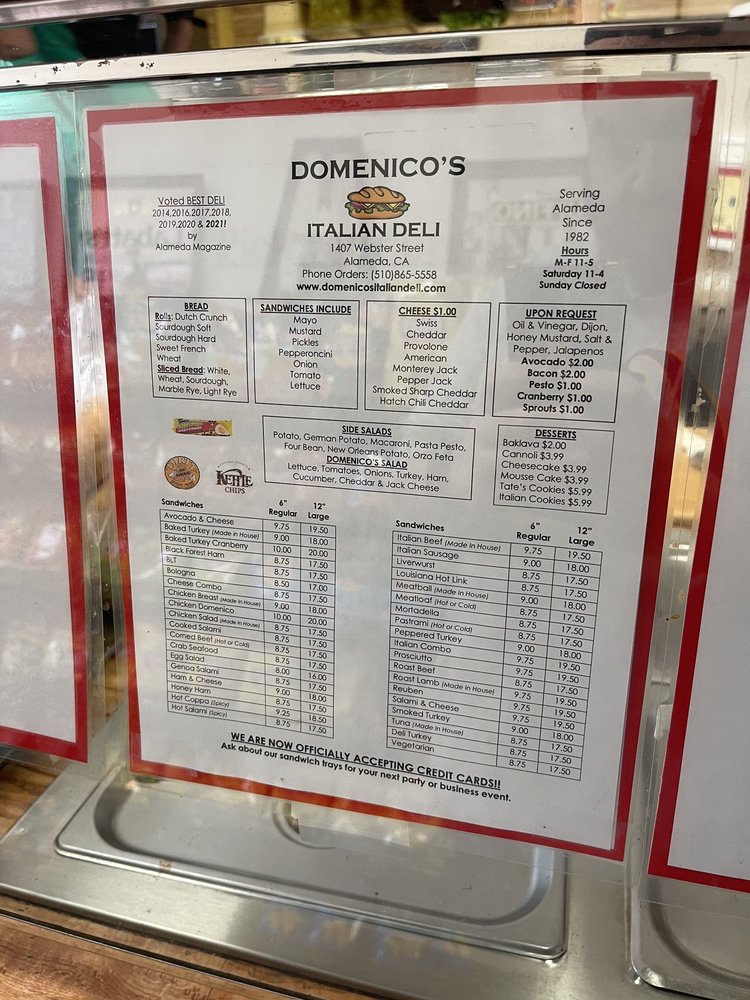 DOMENICO'S
ITALIAN DELI
1407 Webster Street
Alameda, CA
Phone Orders: (510)865-5558
www.domenicositaliandeli.com
Voted BEST DELI
2014,2016,2017,2018,
2019,2020 & 2021!
by
Alameda Magazine
Serving
Alameda
Since
1982
Hours
M-F 11-5
Saturday 11-4
Sunday Closed
BREAD
Rolls: Dutch Crunch
Sourdough Soft
Sourdough Hard
Sweet French
Wheat
Sliced Bread: White,
Wheat, Sourdough,
Marble Rye, Light Rye
SANDWICHES INCLUDE
Mayo
Mustard
Pickles
Pepperoncini
Onion
Tomato
Lettuce
CHEESE $1.00
Swiss
Cheddar
Provolone
American
Monterey Jack
Pepper Jack
Smoked Sharp Cheddar
Hatch Chili Cheddar
UPON REQUEST
Oil & Vinegar, Dijon,
Honey Mustard, Salt &
Pepper, Jalapenos
Avocado $2.00
Bacon $2.00
Pesto $1.00
Cranberry $1.00
Sprouts $1.00
KETTLE
CHIPS
SIDE SALADS
Potato, German Potato, Macaroni, Pasta Pesto,
Four Bean, New Orleans Potato, Orzo Feta
DOMENICO'S SALAD
Lettuce, Tomatoes, Onions, Turkey, Ham,
Cucumber, Cheddar & Jack Cheese
DESSERTS
Baklava $2.00
Cannoli $3.99
Cheesecake $3.99
Mousse Cake $3.99
Tate's Cookies $5.99
Italian Cookies $5.99
Sandwiches 6" Regular 12" Large
Avocado & Cheese 9.75 19.50
Baked Turkey (Made in House) 9.00 18.00
Baked Turkey Cranberry 10.00 20.00
Black Forest Ham 8.75 17.50
BLT 8.75 17.50
Bologna 8.50 17.00
Cheese Combo 8.75 17.50
Chicken Breast (Made in House) 9.00 18.00
Chicken Domenico 10.00 20.00
Chicken Salad (Made in House) 8.75 17.50
Cooked Salami 8.75 17.50
Corned Beef (Hot or Cold) 8.75 17.50
Crab Seafood 8.75 17.50
Egg Salad 8.00 16.00
Genoa Salami 8.75 17.50
Ham & Cheese 9.00 18.00
Honey Ham 8.75 17.50
Hot Coppa (Spicy) 9.25 18.50
Hot Salami (Spicy) 8.75 17.50
Sandwiches 6" Regular 12" Large
Italian Beef (Made in House) 9.75 19.50
Italian Sausage 9.00 18.00
Liverwurst 8.75 17.50
Louisiana Hot Link 8.75 17.50
Meatball (Made in House) 9.00 18.00
Meatloaf (Hot or Cold) 8.75 17.50
Mortadella 8.75 17.50
Pastrami (Hot or Cold) 8.75 17.50
Peppered Turkey 9.00 18.00
Italian Combo 9.75 19.50
Prosciutto 9.75 19.50
Roast Beef 8.75 17.50
Roast Lamb (Made in House) 9.75 19.50
Reuben 9.75 19.50
Salami & Cheese 9.75 19.50
Smoked Turkey 9.00 18.00
Tuna (Made in House) 8.75 17.50
Deli Turkey 8.75 17.50
Vegetarian 8.75 17.50
WE ARE NOW OFFICIALLY ACCEPTING CREDIT CARDS!!
Ask about our sandwich trays for your next party or business event.